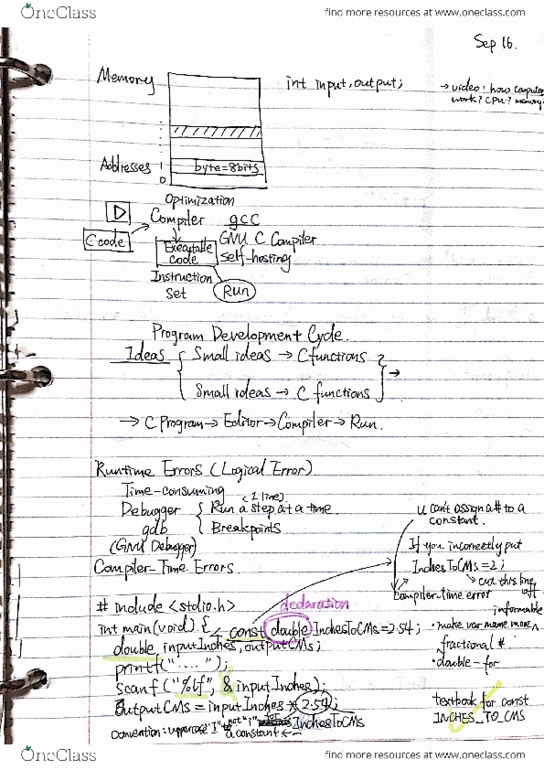 OneClass
find more resources at www.oneclass.com
Sep 16.
Memory
int input, output;
→ video: how computer
work? CPU? memory?
Addresses
1
0
byte=8bits
Optimization
Compiler gcc
C code
Executable
code
GNU C Compiler
self-hosting
Instruction
Set
Run
Program Development Cycle.
Ideas { Small ideas → C functions }
→
Small ideas → C functions
→ C Program → Editor → Compiler → Run.
Runtime Errors (Logical Error)
Time-consuming
(1 line)
Debugger { Run a step at a time.
gdb
Breakpoints
(GNU Debugger)
Compiler-Time Errors
u can't assign a # to a
constant.
If you incorrectly put
InchesToCMS=2;
cut this line
off
compiler-time error
declaration
# include <stdio.h>
int main(void) {
const double InchesToCMs=2.54;
double inputInches, outputCMs;
printf("...");
scanf ("%lf", & inputInches);
outputCMS = inputInches * 2.54;
InchesToCMs
convention: uppercase "I" not "i" for
a constant ←
informable
• make var name more ^
fractional #
• double - for
textbook for const
INCHES_TO_CMS
OneClass
find more resources at www.oneclass.com